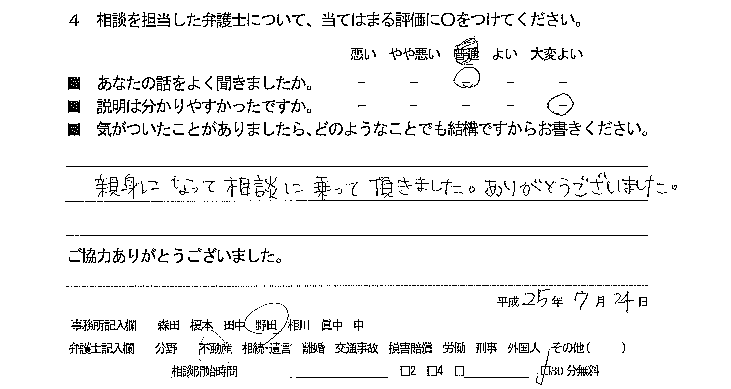 4 相談を担当した弁護士について、当てはまる評価に○をつけてください。
悪い やや悪い 普通 よい 大変よい
あなたの話をよく聞きましたか。 － － － － －
説明は分かりやすかったですか。 － － － － －
気がついたことがありましたら、どのようなことでも結構ですからお書きください。
親身になって相談に乗って頂きました。ありがとうございました。
ご協力ありがとうございました。
平成 25 年 7 月 24 日
事務所記入欄 森田 榎本 田中 野田 相川 眞中 中
弁護士記入欄 分野 不動産 相続・遺言 離婚 交通事故 損害賠償 労働 刑事 外国人 その他( )
相談開始時間 □2 □4 □ □30分無料